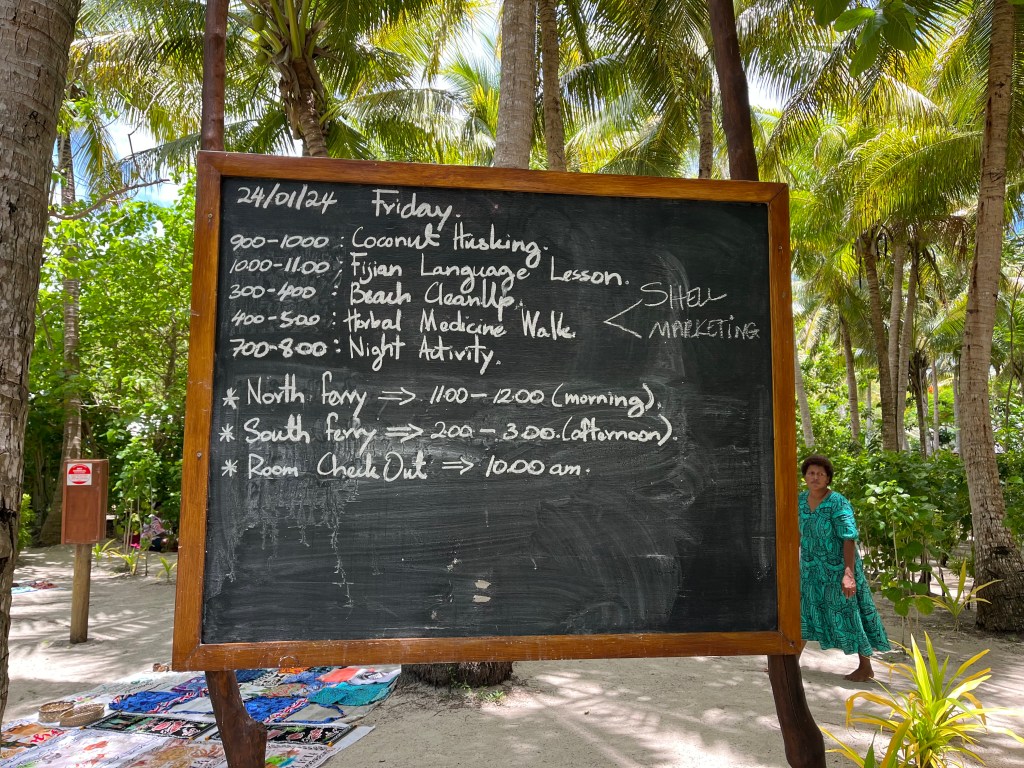 24/01/24 Friday.
900-1000 : Coconut Husking.
10.00-11.00 : Fijian Language Lesson.
300-400 : Beach CleanUp.
400-500 : Herbal Medicine Walk.
SHELL
MARKETING
700-8.00 : Night Activity.
* North ferry ⇒ 11.00 - 12.00 (morning),
* South ferry ⇒ 2.00 - 3.00.(afternoon).
* Room Check Out ⇒ 10.00 am.